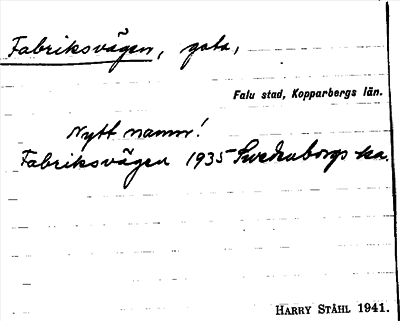 Fabriksvägen, gata,
Falu stad, Kopparbergs län.
Nytt namn!
Fabriksvägen 1935 Swedenborgs ka.
HARRY STÅHL 1941.